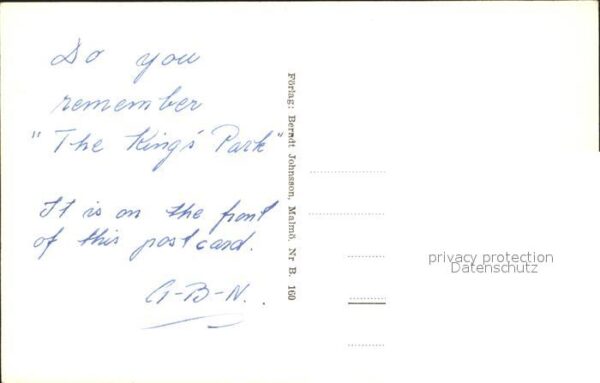 Do you
remember
"The King's Park"
It is on the front
of this postcard.
G-B-N.
Förlag: Berndt Johnsson, Malmö. Nr B. 160
privacy protection
Datenschutz